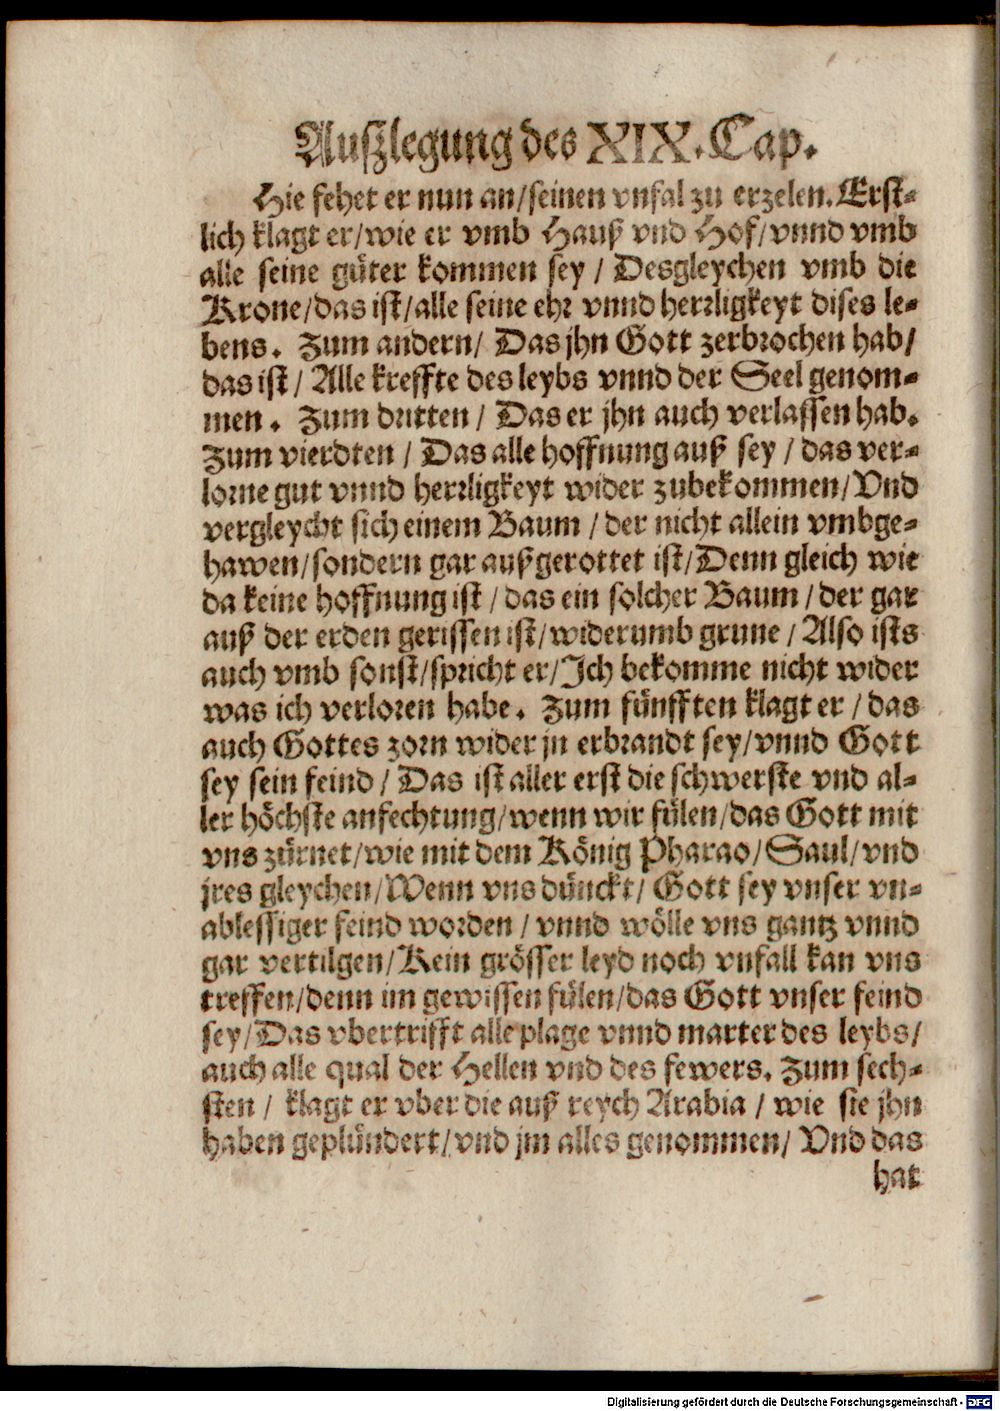 Auſzlegung des XIX. Cap.
Hie fehet er nun an/ſeinen vnfal zu erzelen. Erſt-
lich klagt er/wie er vmb Hauß vnd Hof/vnnd vmb
alle ſeine güter kommen ſey / Desgleychen vmb die
Krone/das iſt/alle ſeine ehr vnnd herrligkeyt diſes le-
bens. Zum andern/ Das jhn Gott zerbrochen hab/
das iſt / Alle kreffte des leybs vnnd der Seel genom-
men. Zum dritten / Das er jhn auch verlaſſen hab.
Zum vierdten / Das alle hoffnung auß ſey / das ver-
lorne gut vnnd herrligkeyt wider zubekommen/Vnd
vergleycht ſich einem Baum / der nicht allein vmbge-
hawen/ſondern gar außgerottet iſt/Denn gleich wie
da keine hoffnung iſt / das ein ſolcher Baum / der gar
auß der erden geriſſen iſt/widerumb grune / Alſo iſts
auch vmb ſonſt/ſpricht er/Ich bekomme nicht wider
was ich verloren habe. Zum fünfften klagt er / das
auch Gottes zorn wider jn erbrandt ſey/vnnd Gott
ſey ſein feind / Das iſt aller erſt die ſchwerſte vnd al-
ler höchſte anfechtung/wenn wir fülen/das Gott mit
vns zürnet/wie mit dem König Pharao/Saul/vnd
jres gleychen/Wenn vns dünckt/ Gott ſey vnſer vn-
ableſſiger feind worden / vnnd wölle vns gantz vnnd
gar vertilgen/Kein gröſſer leyd noch vnfall kan vns
treffen/denn im gewiſſen fülen/das Gott vnſer feind
ſey/Das vbertrifft alle plage vnnd marter des leybs/
auch alle qual der Hellen vnd des fewers. Zum ſech-
ſten / klagt er vber die auß reych Arabia / wie ſie jhn
haben geplündert/vnd jm alles genommen/ Vnd das
hat
Digitalisierung gefördert durch die Deutsche Forschungsgemeinschaft - DFG